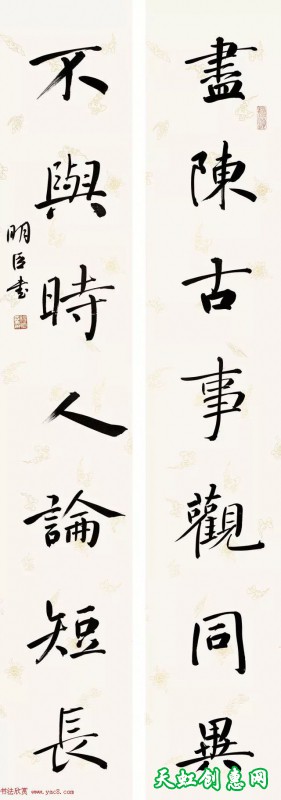 盡陳古事觀同異
不與時人論短長
明臣書
书法欣赏
www.yac8.com
天虹创惠网